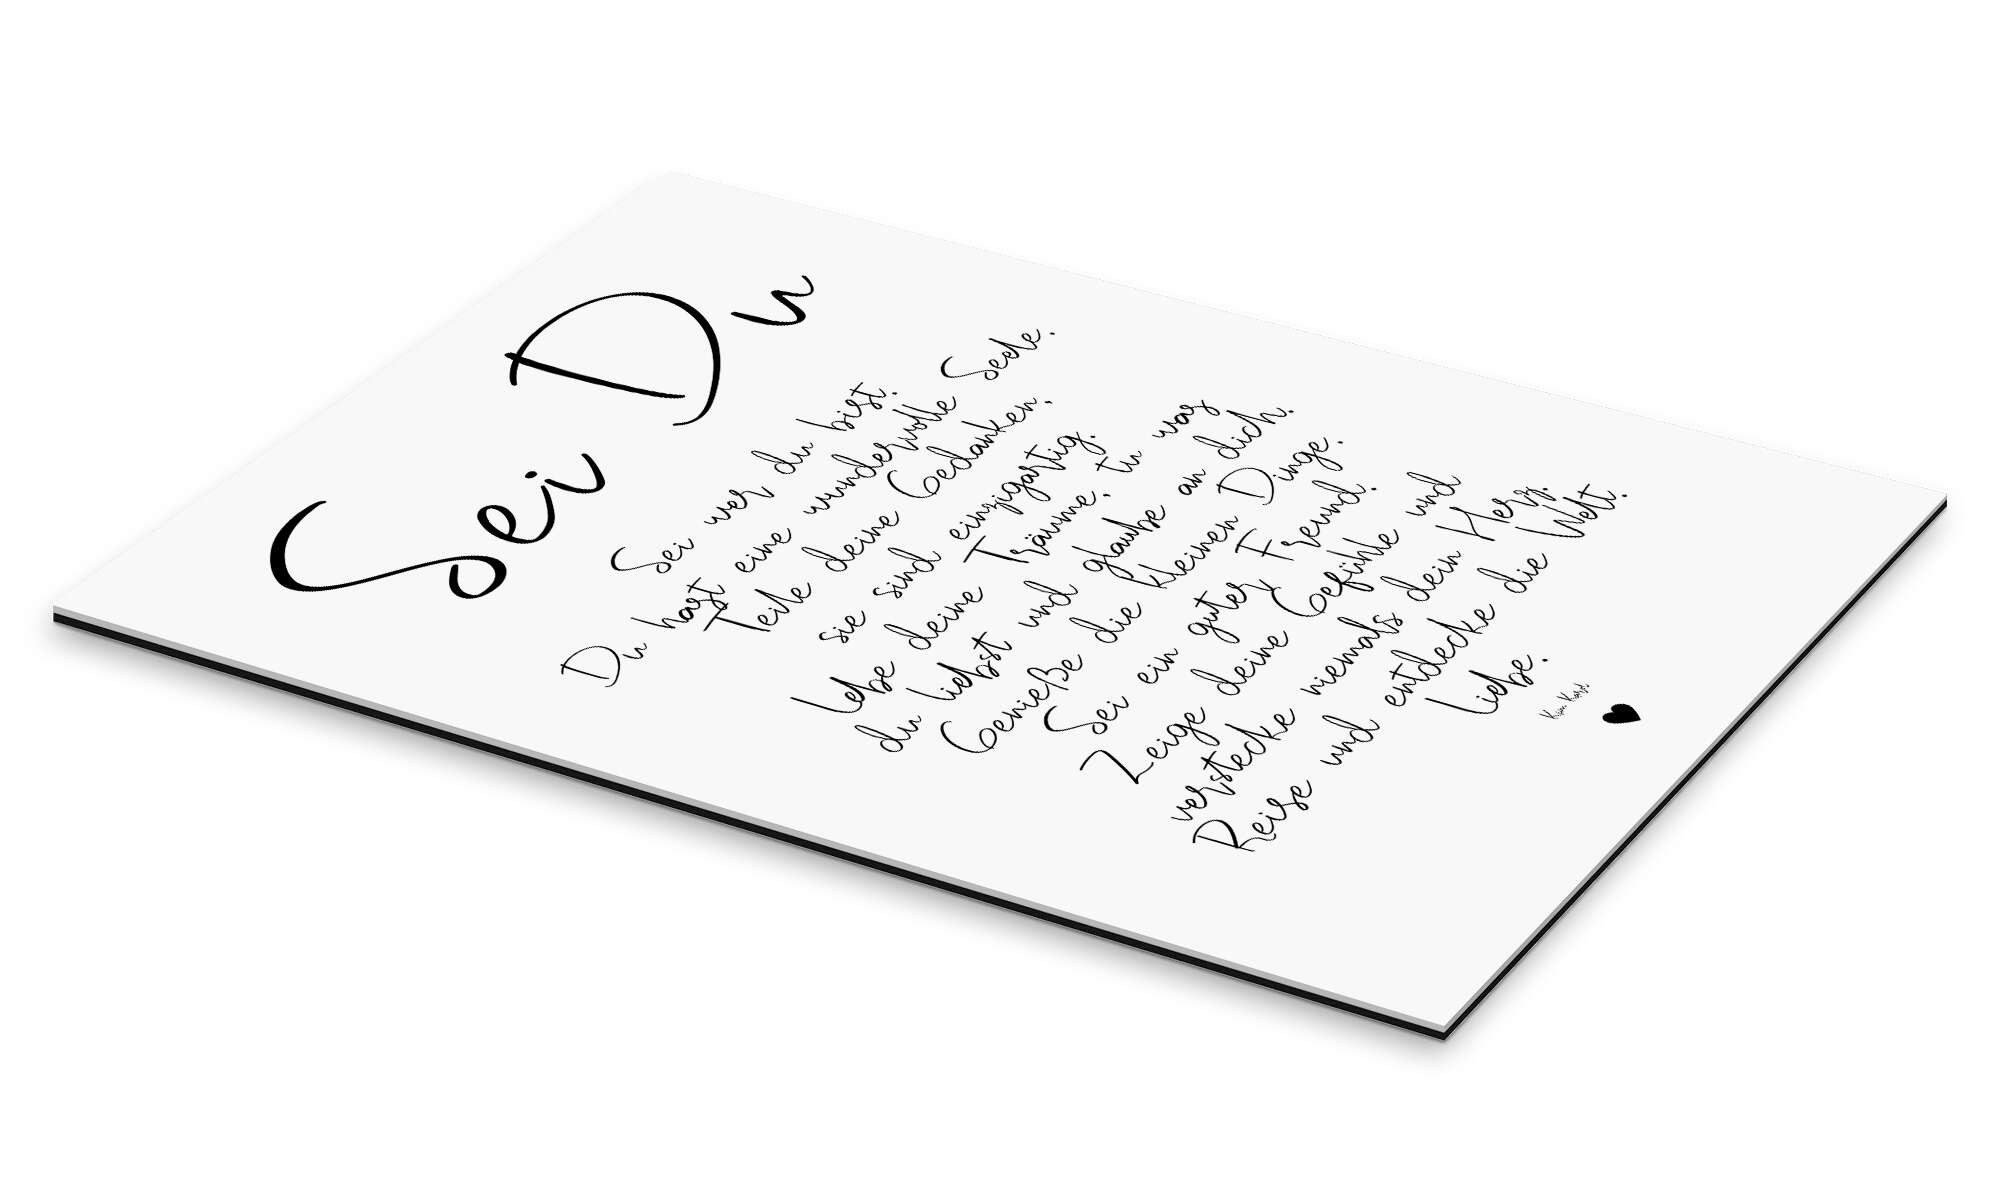 Sei Du
Sei wer du bist.
Du hast eine wundervolle Seele.
Teile deine Gedanken,
sie sind einzigartig.
Lebe deine Träume, tu was
du liebst und glaube an dich.
Genieße die kleinen Dinge.
Sei ein guter Freund.
Zeige deine Gefühle und
verstecke niemals dein Herz.
Reise und entdecke die Welt.
Liebe.
Kim Karst